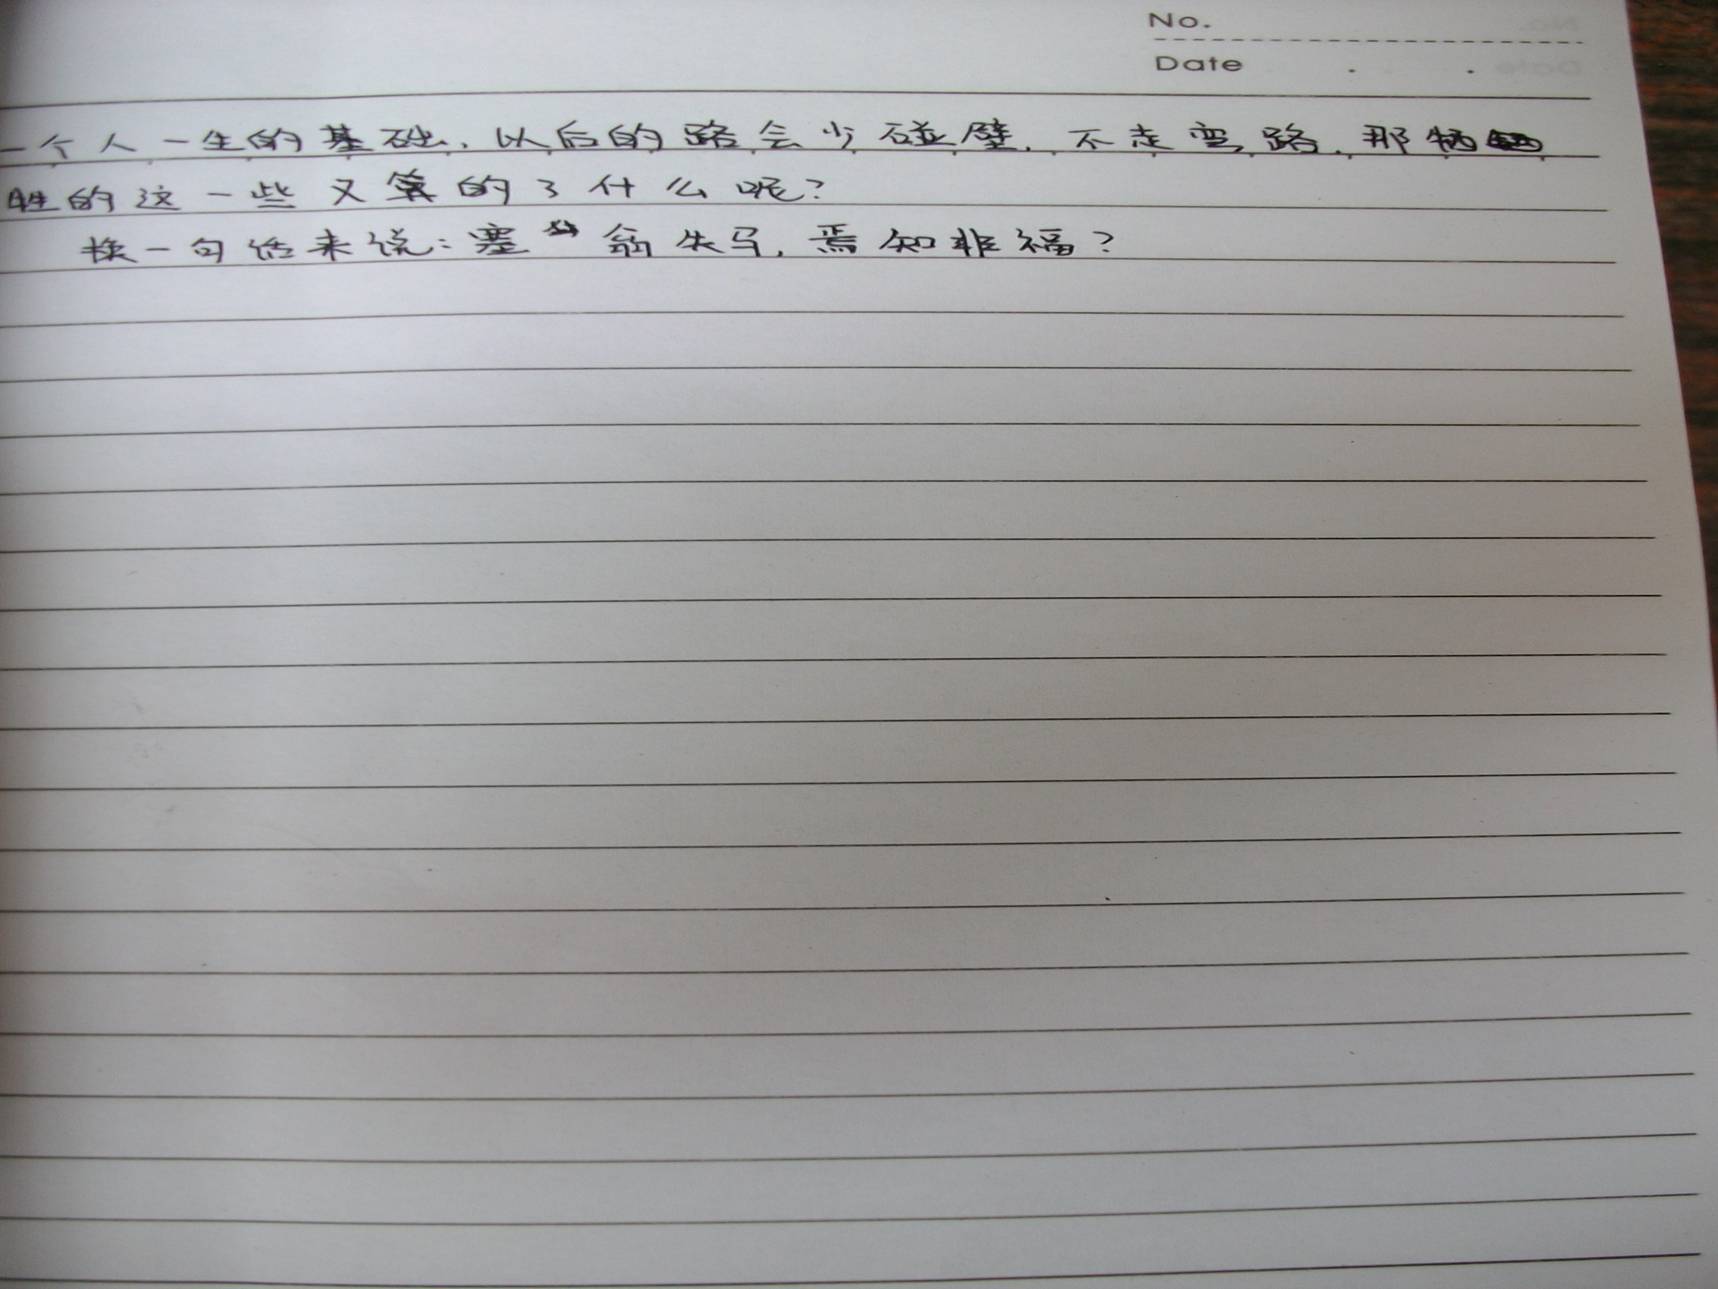 No.
Date
一个人一生的基础，以后的路会少碰壁，不走弯路，那牺
牲的这一些又算的了什么呢？
换一句话来说：塞翁失马，焉知非福？